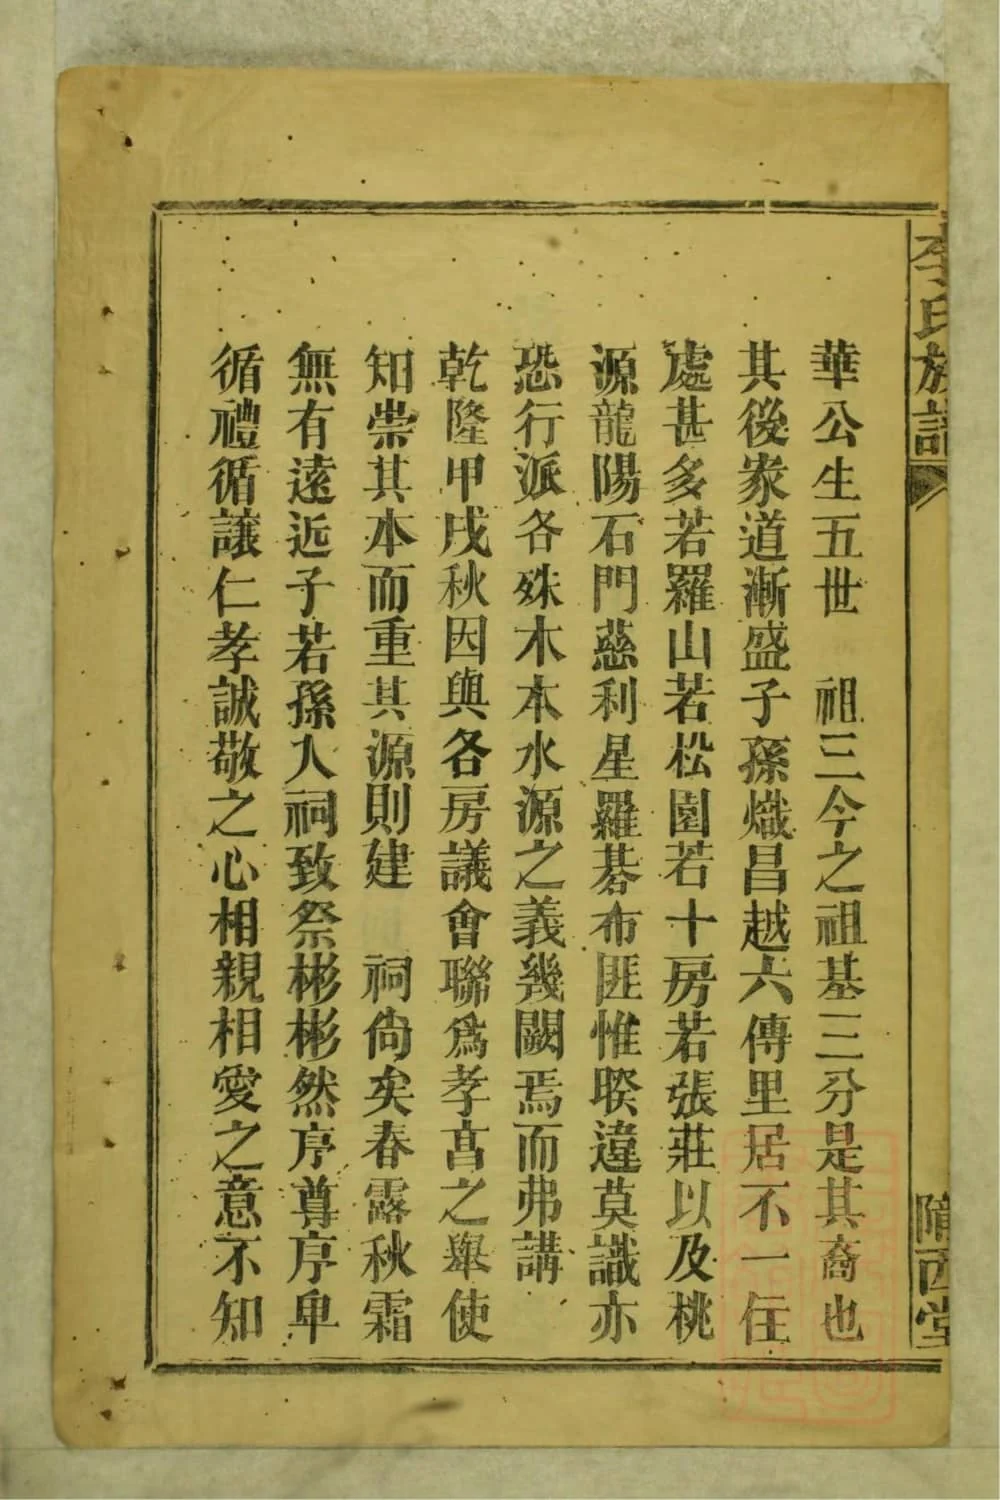 李氏族譜
隴西堂
華公生五世　祖三今之祖基三分是其裔也
其後家道漸盛子孫熾昌越六傳里居不一任
處甚多若羅山若松園若十房若張莊以及桃
源龍陽石門慈利星羅碁布匪惟暌違莫識亦
恐行派各殊木本水源之義幾闕焉而弗講
乾隆甲戌秋因與各房議會聯爲孝享之舉使
知崇其本而重其源則建　祠尙矣春露秋霜
無有遠近子若孫入祠致祭彬彬然序尊序卑
循禮循讓仁孝誠敬之心相親相愛之意不知